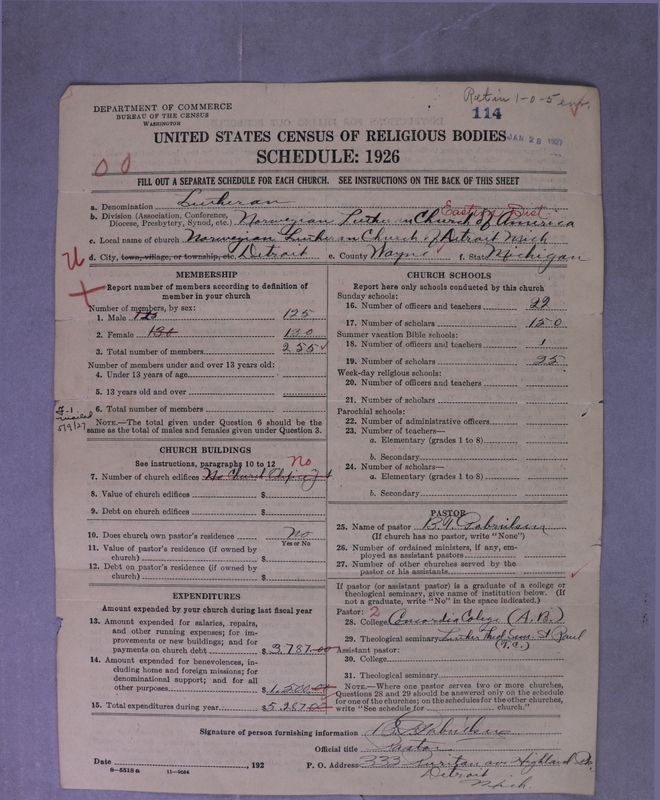 Retin 1-0-5
114
JAN 28 1927
DEPARTMENT OF COMMERCE
BUREAU OF THE CENSUS
WASHINGTON
UNITED STATES CENSUS OF RELIGIOUS BODIES
SCHEDULE: 1926
00
FILL OUT A SEPARATE SCHEDULE FOR EACH CHURCH. SEE INSTRUCTIONS ON THE BACK OF THIS SHEET
a. Denomination Lutheran
Eastern Dist
b. Division (Association, Conference, Diocese, Presbytery, Synod, etc.) Norwegian Lutheran Church of America
c. Local name of church Norwegian Lutheran Church of Detroit Mich
d. City, town, village, or township, etc. Detroit e. County Wayne f. State Michigan
U
MEMBERSHIP
Report number of members according to definition of
member in your church
Number of members, by sex:
1. Male 125 125
2. Female 130 130
3. Total number of members 255
Number of members under and over 13 years old:
4. Under 13 years of age
5. 13 years old and over
6. Total number of members
NOTE.—The total given under Question 6 should be the
same as the total of males and females given under Question 3.
mailed
5/9/27
CHURCH BUILDINGS
See instructions, paragraphs 10 to 12
No
7. Number of church edifices No Church Edifice
8. Value of church edifices $
9. Debt on church edifices $
10. Does church own pastor's residence No
Yes or No
11. Value of pastor's residence (if owned by
church) $
12. Debt on pastor's residence (if owned by
church) $
EXPENDITURES
Amount expended by your church during last fiscal year
13. Amount expended for salaries, repairs,
and other running expenses; for im-
provements or new buildings; and for
payments on church debt $3,787.00
14. Amount expended for benevolences, in-
cluding home and foreign missions; for
denominational support; and for all
other purposes $1,500.00
15. Total expenditures during year $5,287.00
CHURCH SCHOOLS
Report here only schools conducted by this church
Sunday schools:
16. Number of officers and teachers 22
17. Number of scholars 150
Summer vacation Bible schools:
18. Number of officers and teachers 1
19. Number of scholars 25
Week-day religious schools:
20. Number of officers and teachers
21. Number of scholars
Parochial schools:
22. Number of administrative officers
23. Number of teachers—
a. Elementary (grades 1 to 8)
b. Secondary
24. Number of scholars—
a. Elementary (grades 1 to 8)
b. Secondary
PASTOR
25. Name of pastor
(If church has no pastor, write "None")
26. Number of ordained ministers, if any, em-
ployed as assistant pastors
27. Number of other churches served by the
pastor or his assistants
If pastor (or assistant pastor) is a graduate of a college or
theological seminary, give name of institution below. (If
not a graduate, write "No" in the space indicated.)
Pastor: 2
28. College Concordia College (A.B.)
29. Theological seminary Luther Theol Sem. St Paul
Assistant pastor:
30. College
31. Theological seminary
NOTE.—Where one pastor serves two or more churches,
Questions 28 and 29 should be answered only on the schedule
for one of the churches; on the schedules for the other churches,
write "See schedule for church."
Signature of person furnishing information
Official title Pastor
Date , 192 P. O. Address 333 Puritan ave Highland Pk.
Detroit
Mich.
8—5518a 11—9084